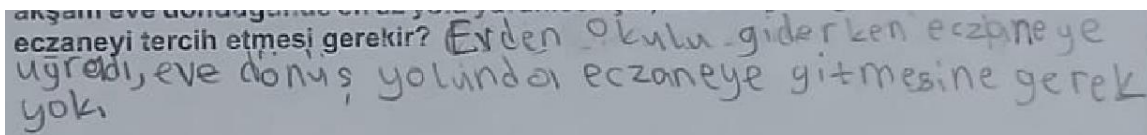 akşam eve döndüğünde en
eczaneyi tercih etmesi gerekir? Evden okulu giderken eczaneye
uğradı, eve dönüş yolunda eczaneye gitmesine gerek
yok.